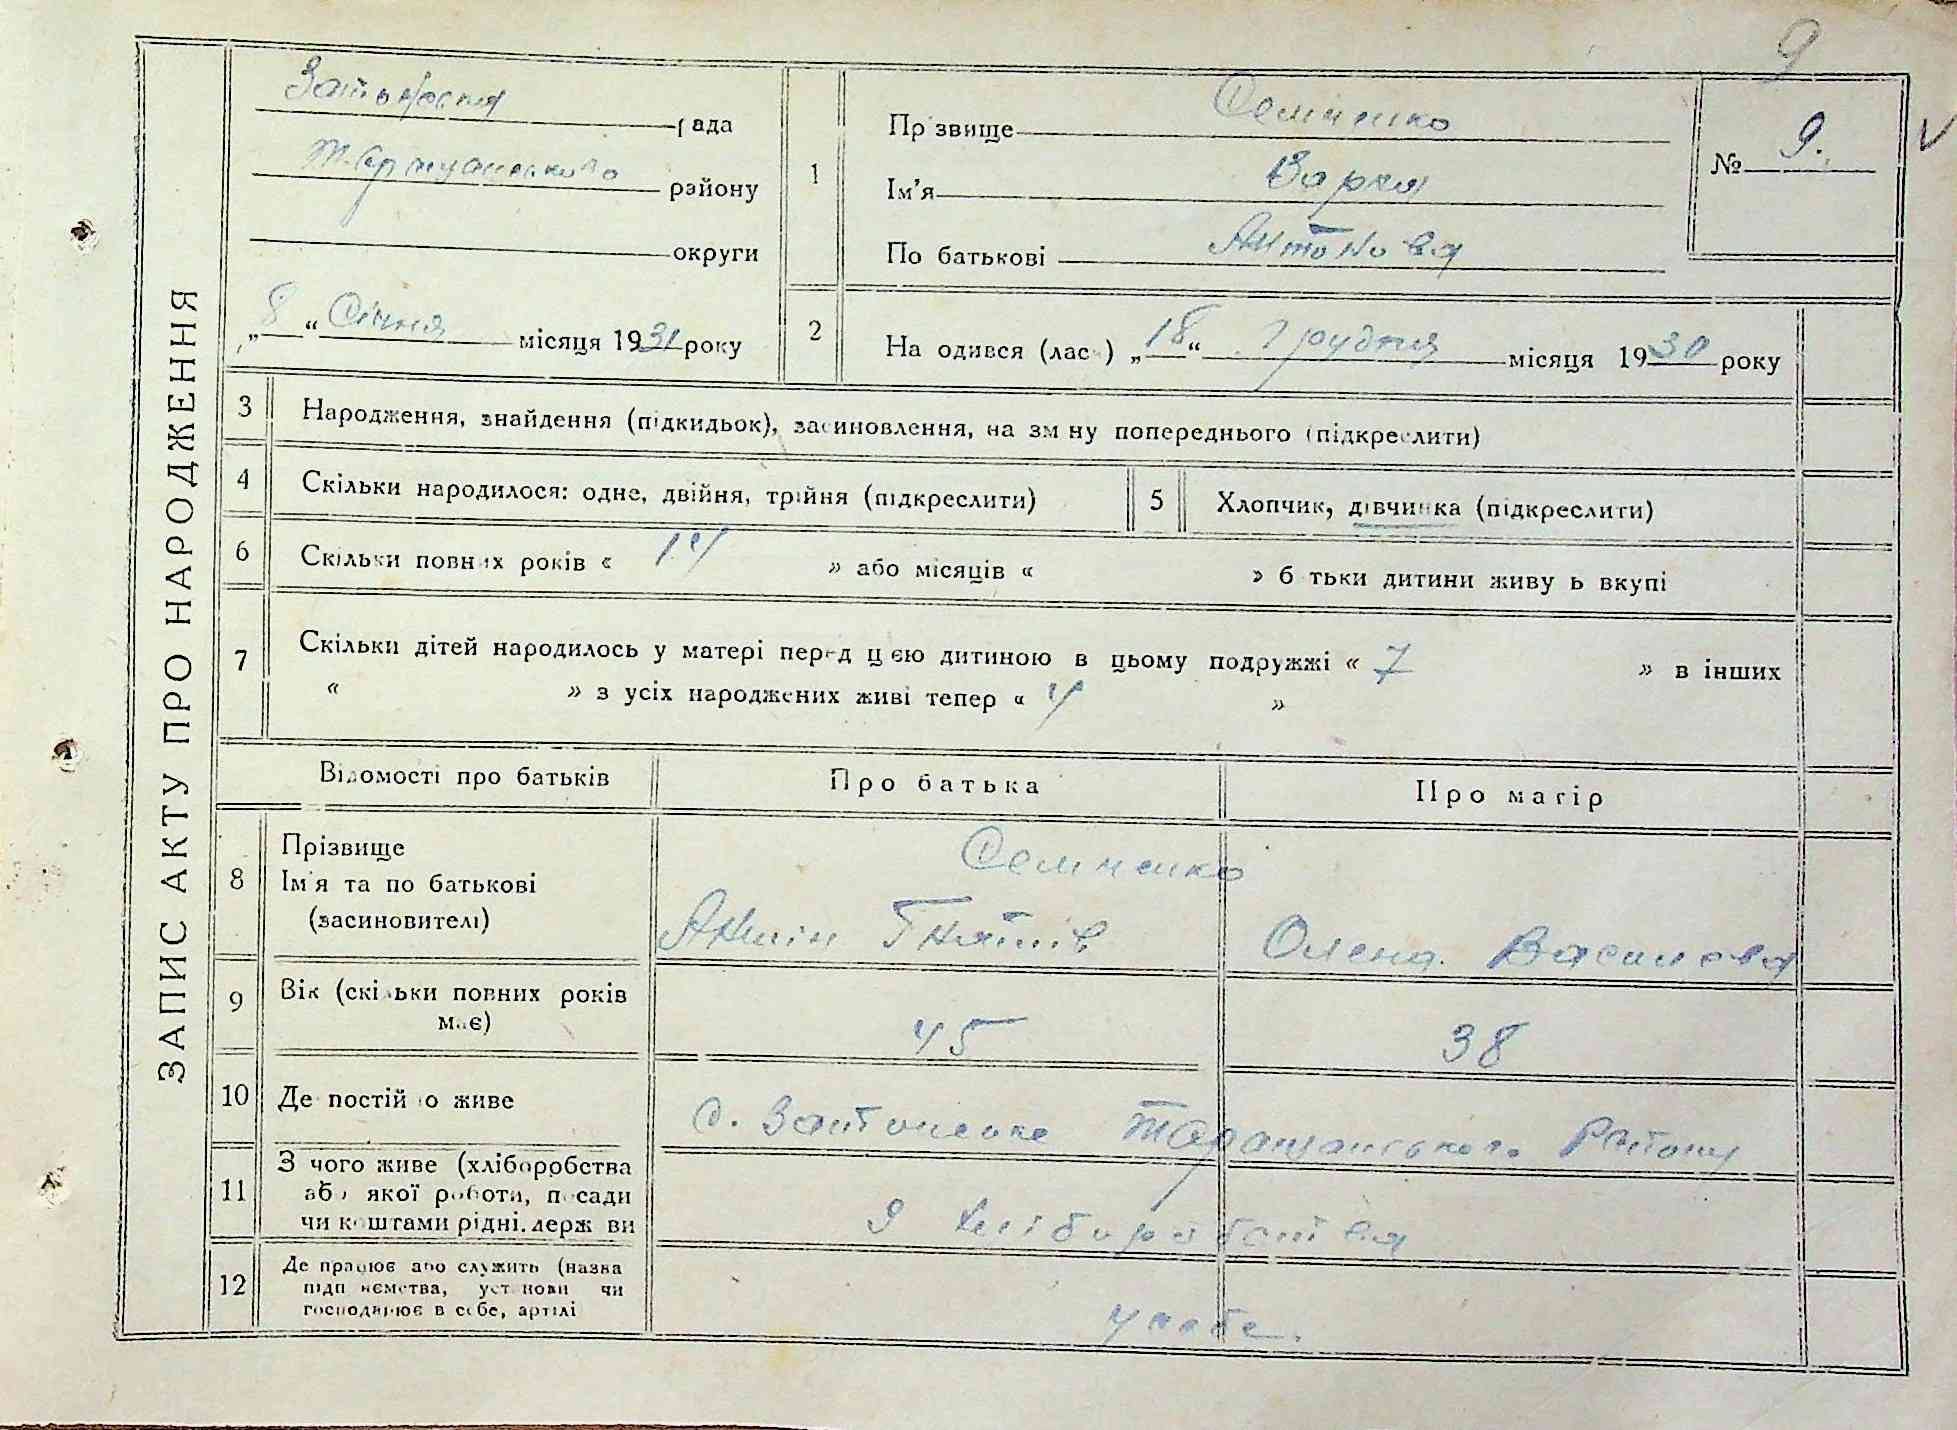 9
ЗАПИС АКТУ ПРО НАРОДЖЕННЯ
рада
Таращанського району
округи
„8“ Січня місяця 1931 року
1
Прізвище Семченко
Ім'я Варка
По батькові Антонова
№ 9.
2
На одився (лась) „18“ Грудня місяця 1930 року
3 Народження, знайдення (підкидьок), засиновлення, на зміну попереднього (підкреслити)
4 Скільки народилося: одне, двійня, трійня (підкреслити)
5 Хлопчик, дівчинка (підкреслити)
6 Скільки повних років « 14 » або місяців « » б тьки дитини живу ь вкупі
7 Скільки дітей народилось у матері перед цією дитиною в цьому подружжі « 7 » в інших
« » з усіх народжених живі тепер « 4 »
Відомості про батьків
Про батька
Про матір
8 Прізвище
Ім'я та по батькові
(засиновителі)
Семченко
Антін Гнатів
Олена Василева
9 Вік (скільки повних років
має)
45
38
10 Де постійно живе
с. Таращанського Району
11 З чого живе (хліборобства
або якої роботи, посади
чи коштами рідні. держ ви
З хліборобства
12 Де працює або служить (назва
підп иємства, уст нови чи
господарює в себе, артілі
у себе.